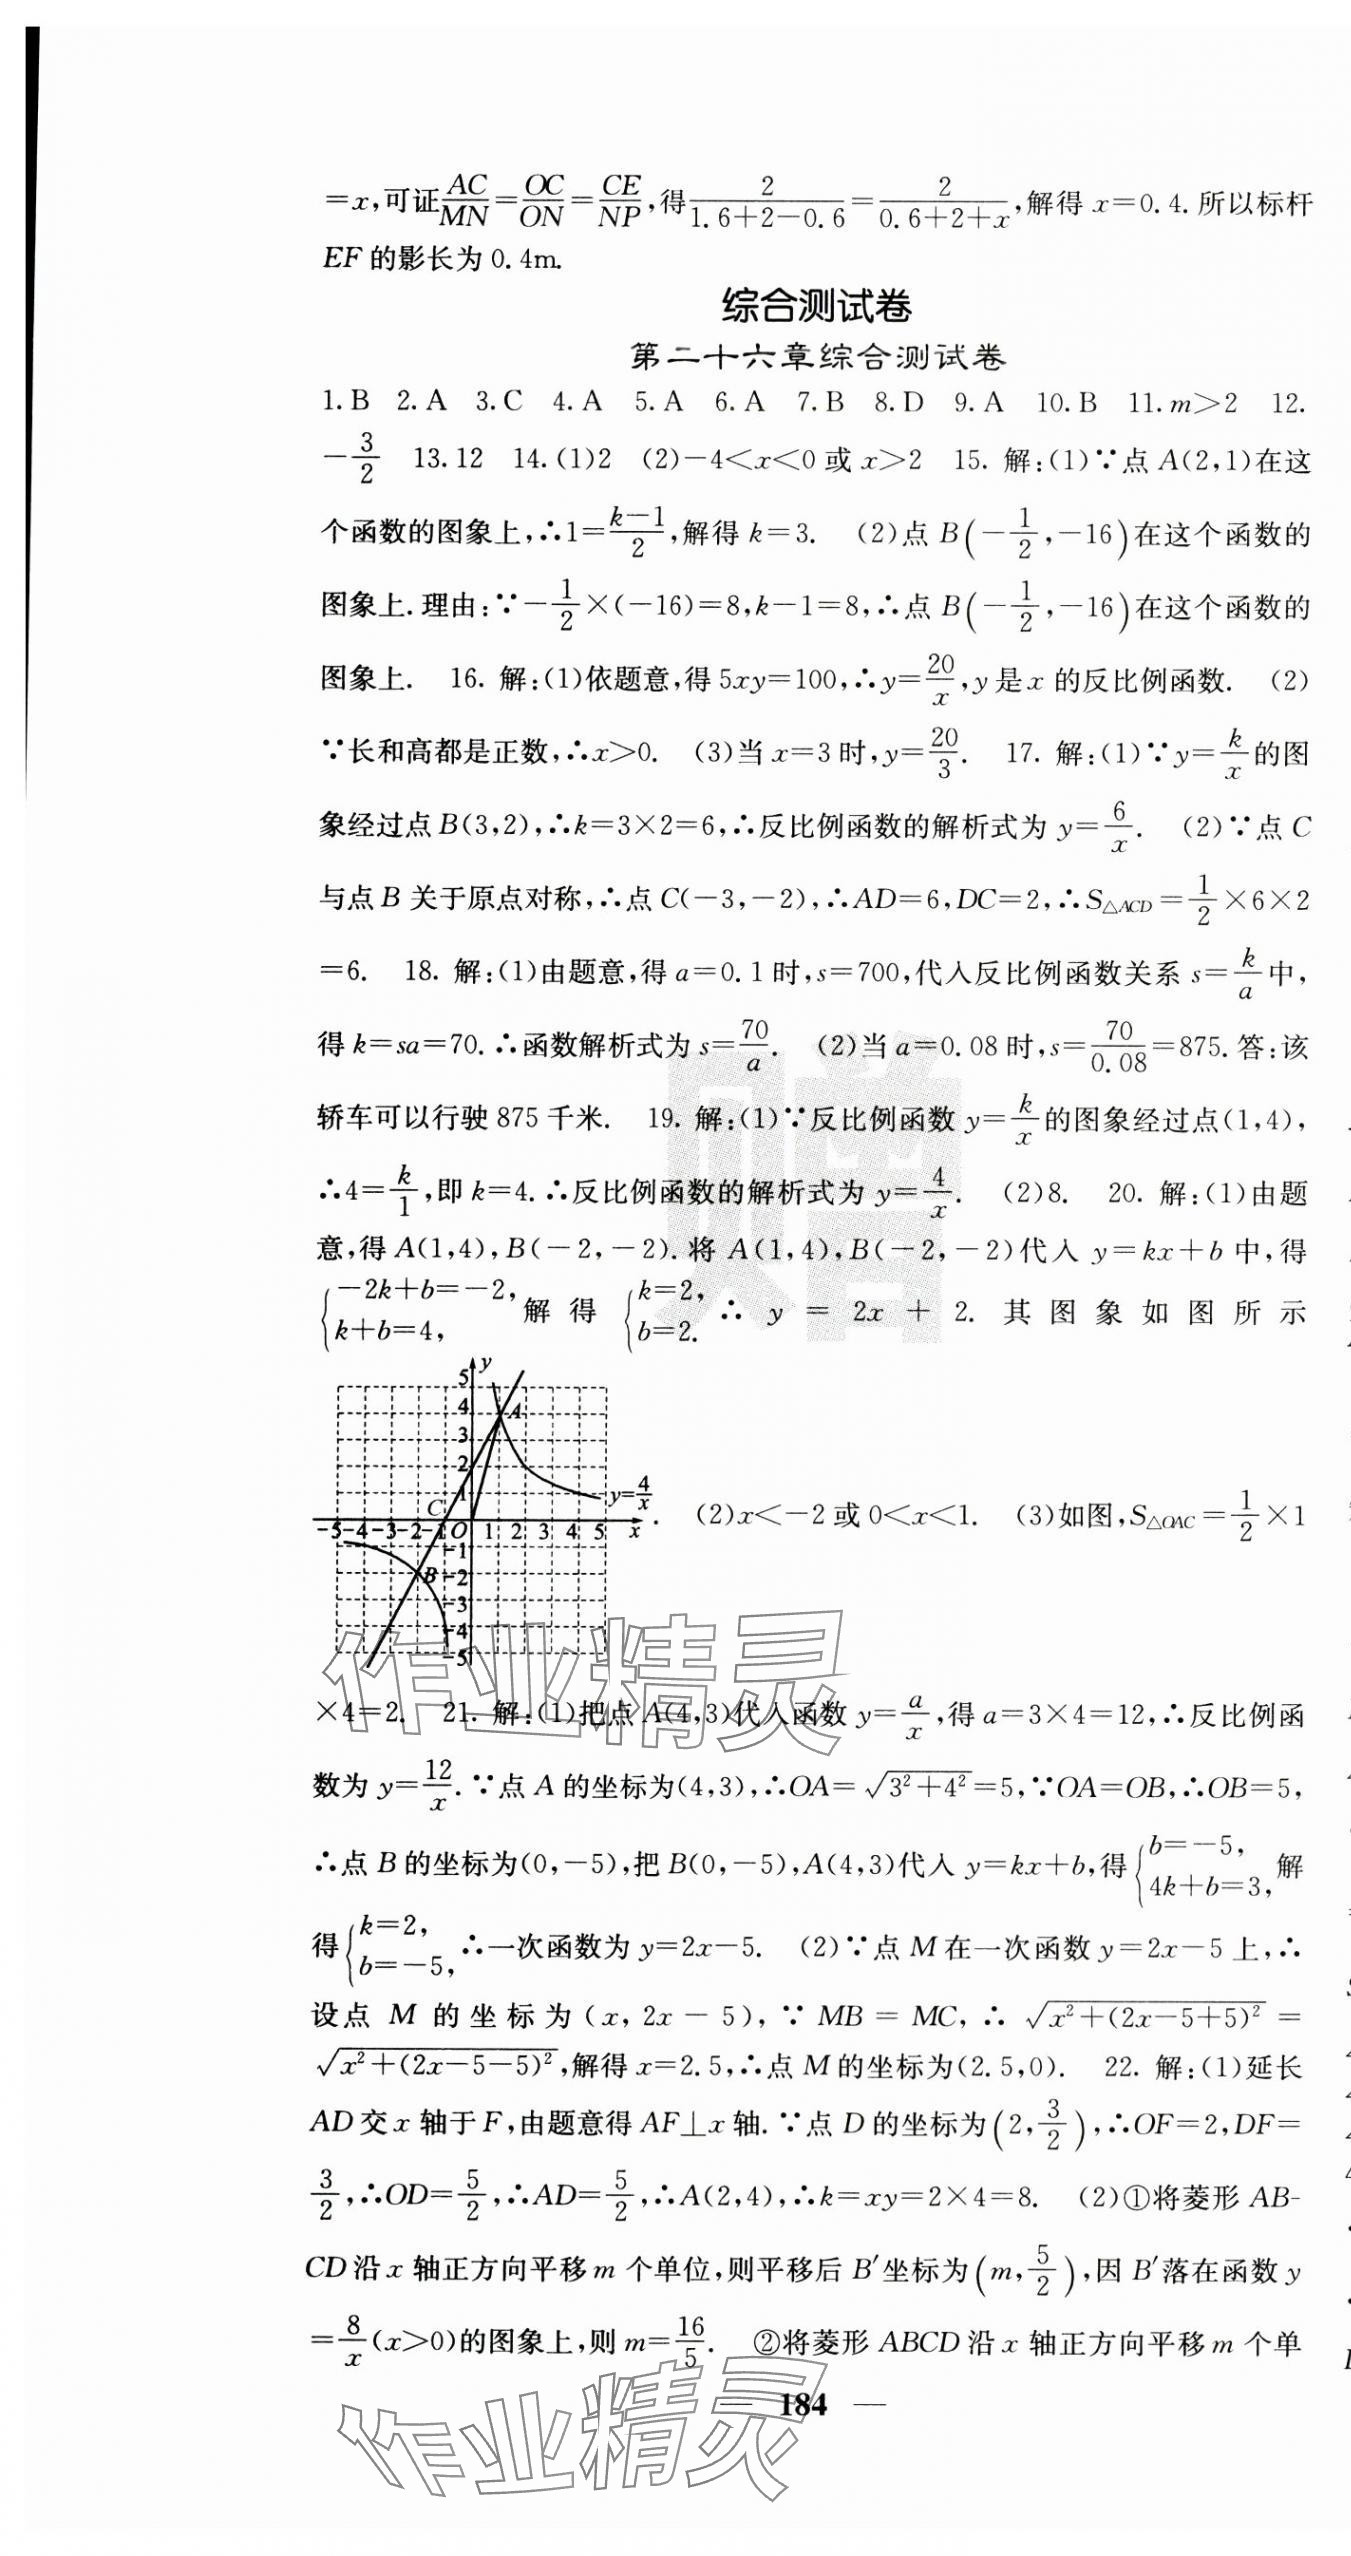 =x,可证AC/MN=OC/ON=CE/NP,得2/(1.6+2-0.6)=2/(0.6+2+x),解得 x=0.4.所以标杆
EF 的影长为 0.4m.
综合测试卷
第二十六章综合测试卷
1.B 2.A 3.C 4.A 5.A 6.A 7.B 8.D 9.A 10.B 11.m>2 12.
-3/2 13.12 14.(1)2 (2)-4<x<0 或 x>2 15. 解:(1)∵点 A(2,1)在这
个函数的图象上,∴1=(k-1)/2,解得 k=3. (2)点 B(-1/2,-16)在这个函数的
图象上.理由:∵-1/2×(-16)=8,k-1=8,∴点 B(-1/2,-16)在这个函数的
图象上. 16. 解:(1)依题意,得 5xy=100,∴y=20/x,y 是 x 的反比例函数. (2)
∵长和高都是正数,∴x>0. (3)当 x=3 时,y=20/3. 17. 解:(1)∵y=k/x的图
象经过点 B(3,2),∴k=3×2=6,∴反比例函数的解析式为 y=6/x. (2)∵点 C
与点 B 关于原点对称,∴点 C(-3,-2),∴AD=6,DC=2,∴S△ACD=1/2×6×2
=6. 18. 解:(1)由题意,得 a=0.1 时,s=700,代入反比例函数关系 s=k/a中,
得 k=sa=70.∴函数解析式为 s=70/a. (2)当 a=0.08 时,s=70/0.08=875.答:该
轿车可以行驶 875 千米. 19. 解:(1)∵反比例函数 y=k/x的图象经过点(1,4),
∴4=k/1,即 k=4.∴反比例函数的解析式为 y=4/x. (2)8. 20. 解:(1)由题
意,得 A(1,4),B(-2,-2).将 A(1,4),B(-2,-2)代入 y=kx+b 中,得
{-2k+b=-2, k+b=4, 解得 {k=2, b=2. ∴ y = 2x + 2. 其图象如图所示
y
5
4 A
3
2
C 1 y=4/x
-5-4-3-2-1 O 1 2 3 4 5 x . (2)x<-2 或 0<x<1. (3)如图,S△OAC=1/2×1
-1
B -2
-3
-4
-5
×4=2. 21. 解:(1)把点 A(4,3)代入函数 y=a/x,得 a=3×4=12,∴反比例函
数为 y=12/x.∵点 A 的坐标为(4,3),∴OA=√(3²+4²)=5,∵OA=OB,∴OB=5,
∴点 B 的坐标为(0,-5),把 B(0,-5),A(4,3)代入 y=kx+b,得{b=-5, 4k+b=3, 解
得{k=2, b=-5, ∴一次函数为 y=2x-5. (2)∵点 M 在一次函数 y=2x-5 上,∴
设点 M 的坐标为(x, 2x - 5), ∵ MB = MC, ∴ √(x²+(2x-5+5)²) =
√(x²+(2x-5-5)²),解得 x=2.5,∴点 M 的坐标为(2.5,0). 22. 解:(1)延长
AD 交 x 轴于 F,由题意得 AF⊥x 轴.∵点 D 的坐标为(2,3/2),∴OF=2,DF=
3/2,∴OD=5/2,∴AD=5/2,∴A(2,4),∴k=xy=2×4=8. (2)①将菱形 AB-
CD 沿 x 轴正方向平移 m 个单位,则平移后 B′坐标为(m,5/2),因 B′落在函数 y
=8/x(x>0)的图象上,则 m=16/5. ②将菱形 ABCD 沿 x 轴正方向平移 m 个单
— 184 —
赠
作业精灵
作业精灵